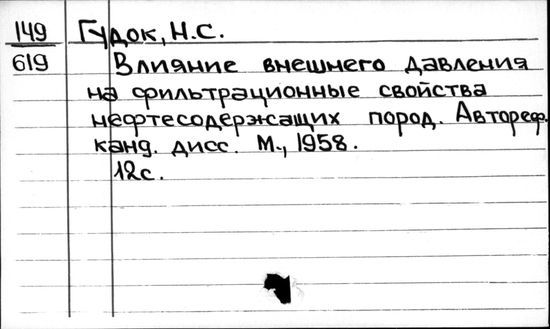 149 Гудок, Н.С.
619 Влияние внешнего давления
на фильтрационные свойства
нефтесодержащих пород. Автореф.
канд. дисс. М., 1958.
12с.